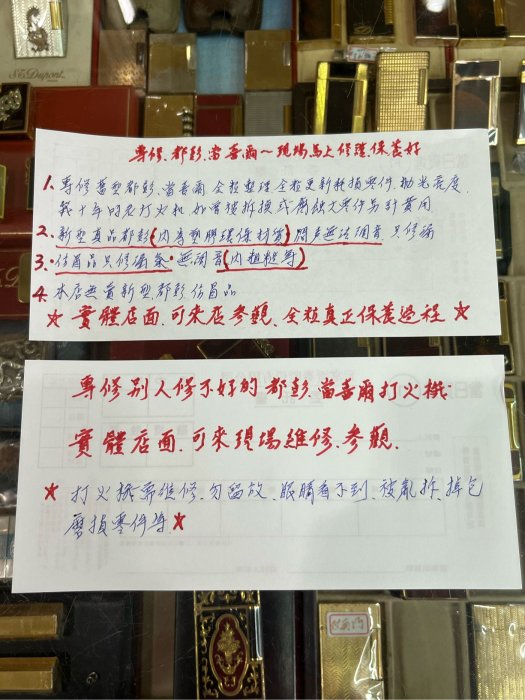 S.T. Dupont
專修.都彭.當喜爾~現場馬上修理.保養好
1. 專修舊型都彭.當喜爾 全粒整理 全粒更新耗損零件.拋光亮度.
幾十年的老打火机 如曾損拆換或腐蝕大零件另計費用
2. 新型真品都彭(內為塑膠環保材質)開声無法調音.只修漏
3.·仿冒品只修漏氣·無調音(內粗糙等)
4. 本店無賣新型都彭仿冒品
★ 實體店面.可來店參觀.全粒真正保養過程 ★
專修別人修不好的都彭.當喜爾打火機.
實體店面.可來現場維修.參觀.
★ 打火機需維修.勿留放.眼睛看不到.被亂拆.掉包
磨損零件等.★